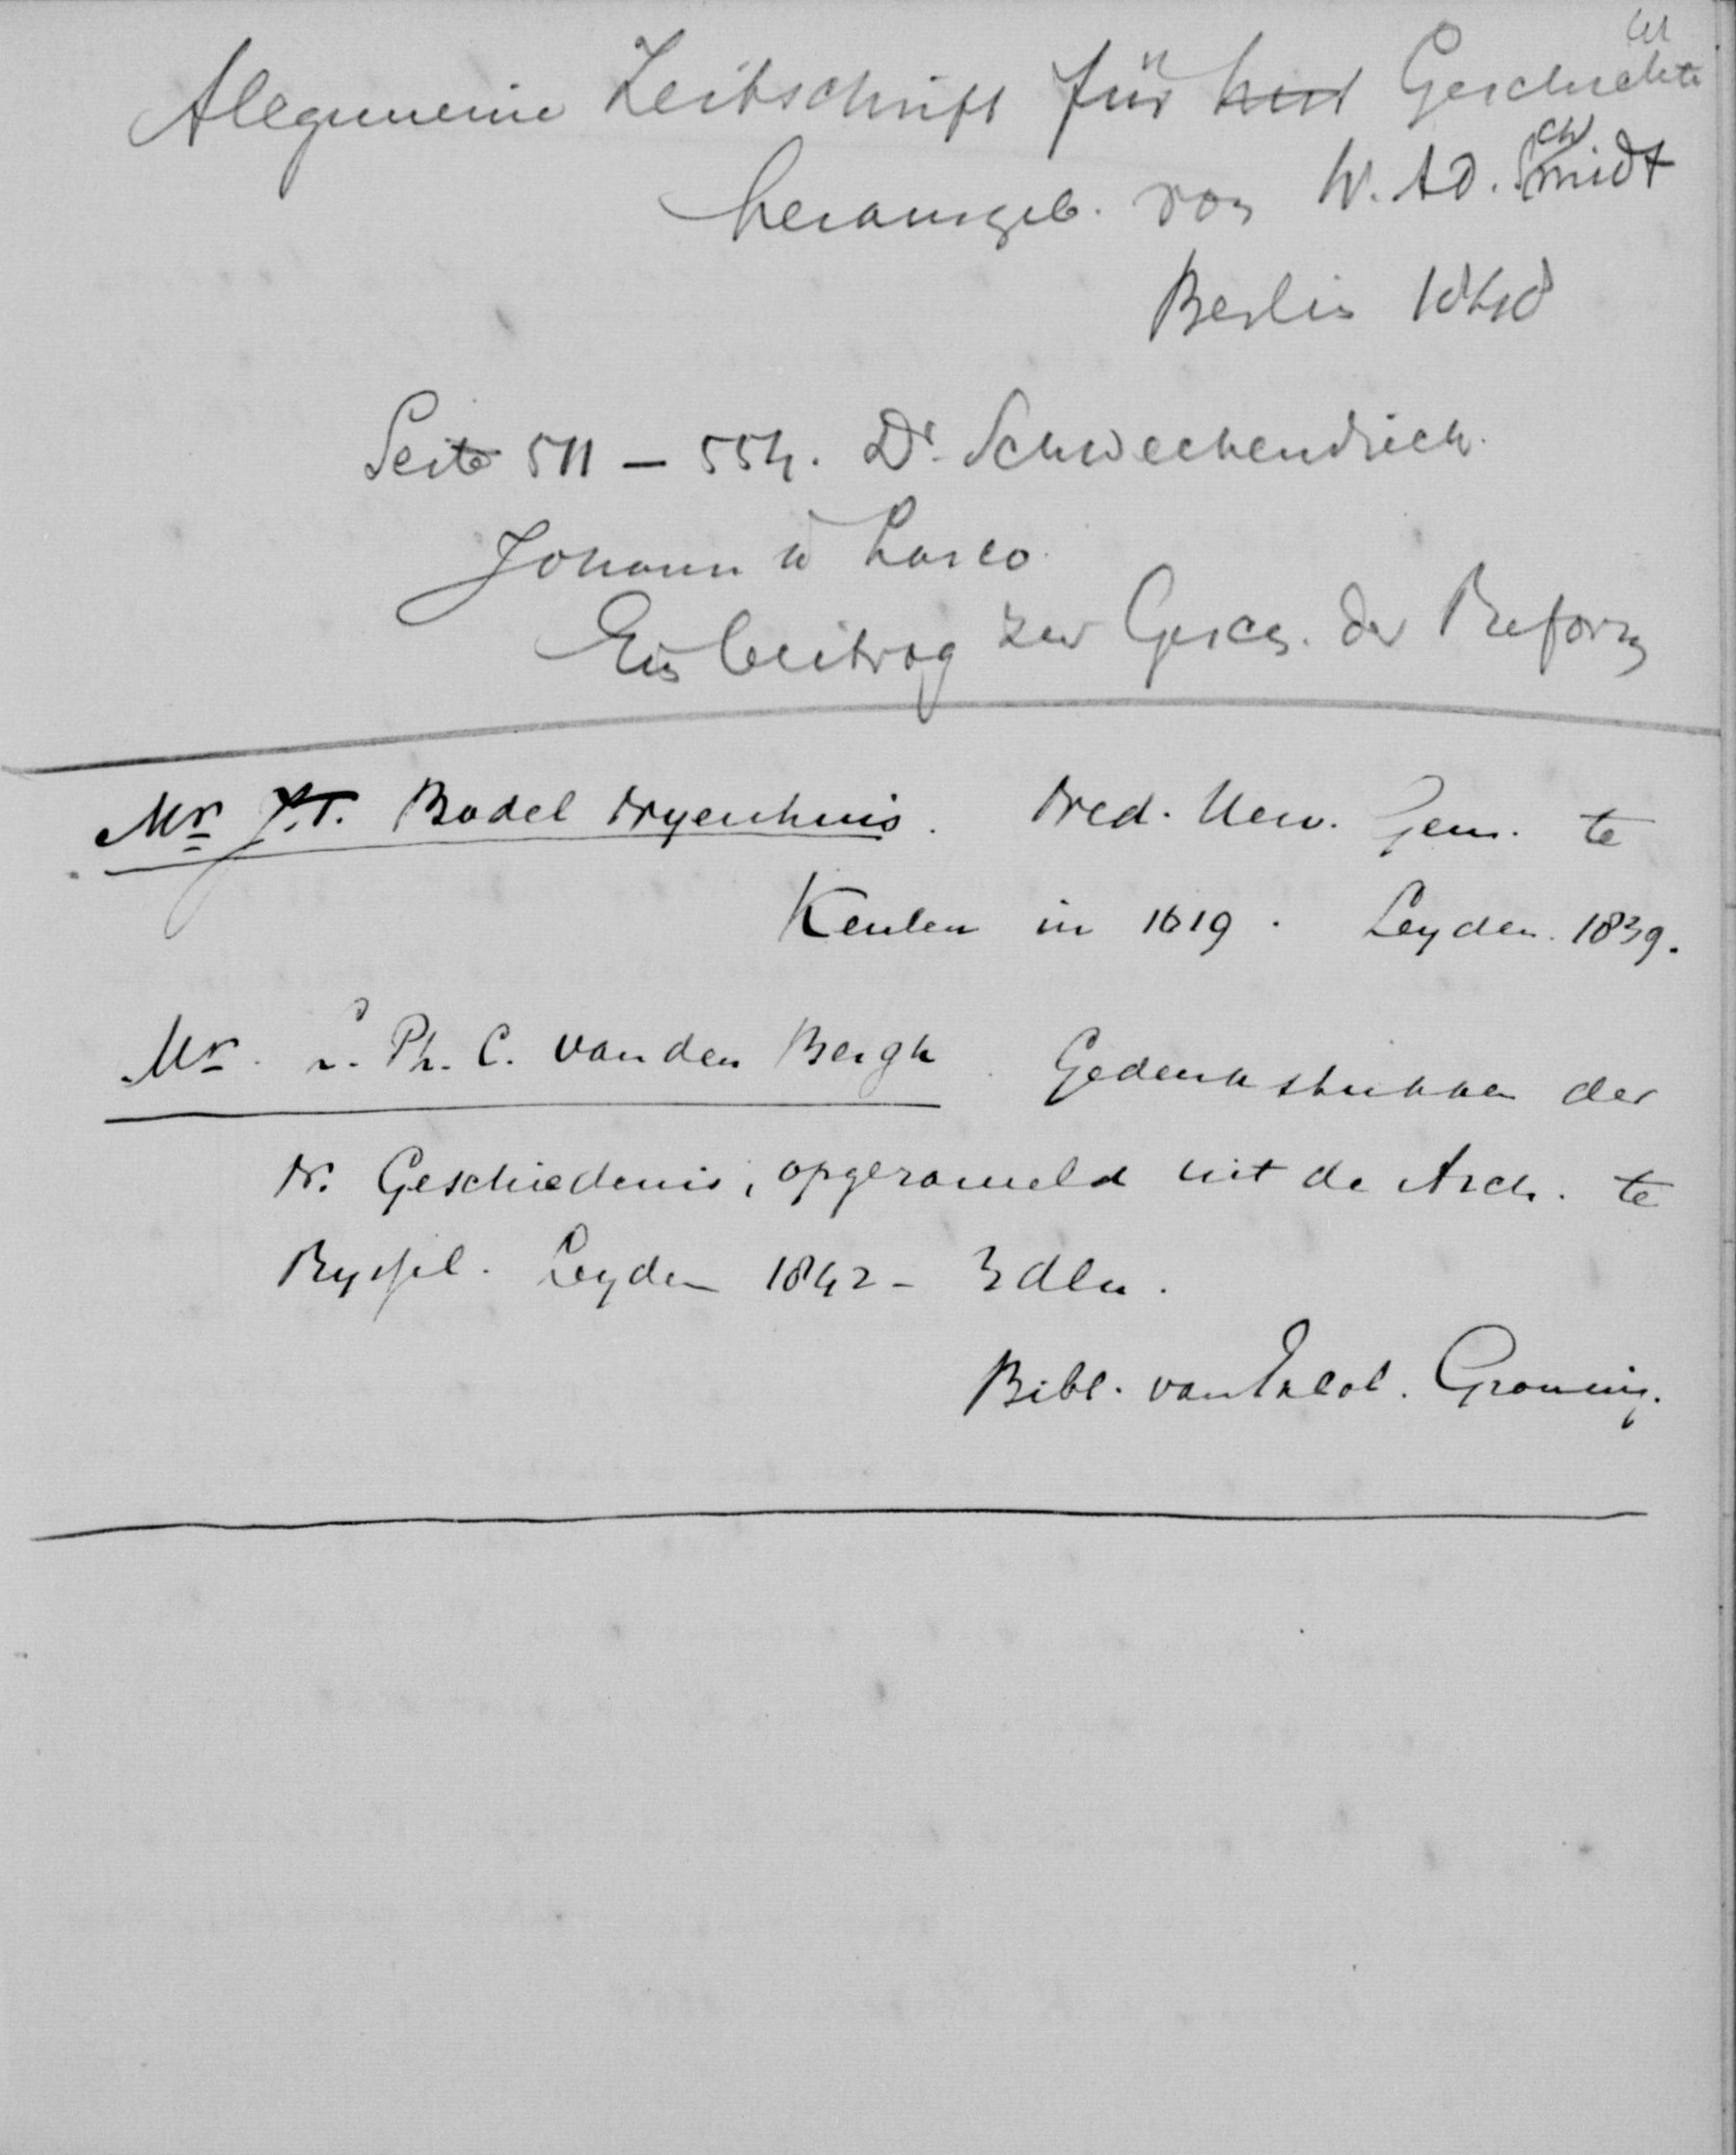 Allegemeine Zeitschrift für Geschichte
herausgeb. von W. Ad. Schmidt
Berlin 1848
Seite 511 – 554. Dr. Schweckendieck
Johann à Lasco
Ein beitrag zur Gesch. der Reform
Mr J.T. Bodel Nyenhuis. Ned. Herv. Gem. te
Keulen in 1619. Leyden. 1839.
Mr. L. Ph. C. van den Bergh. Gedenkstukken der
N. Geschiedenis, opgezameld uit de Arch. te
Ryssel. Leyden 1842 – 3 dln.
Bibl. Groning.